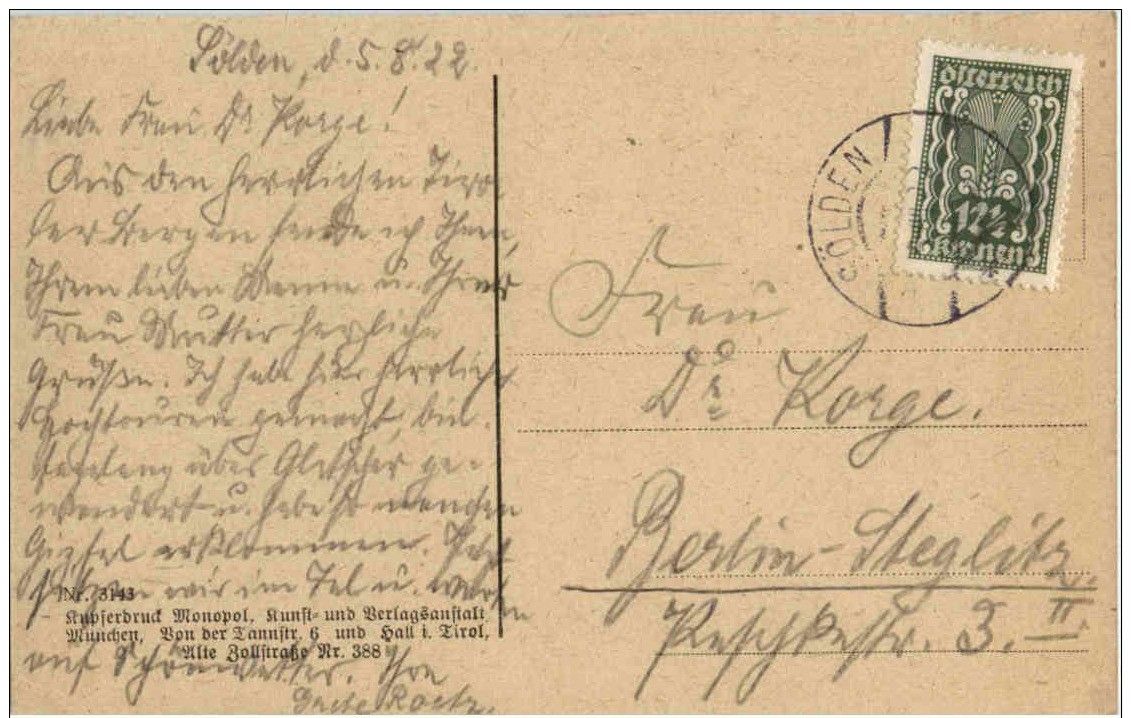 Sölden, d. 5. 8. 22.
Liebe Frau Dr Korge!
Aus den herrlichen Tiro
ler Bergen sende ich Ihnen,
Ihrem lieben Manne u. Ihrer
Frau Mutter herzliche
Grüße. Ich habe hier herrliche
Hochtouren gemacht, bin
über Gletscher ge-
wandert u. habe so manchen
Gipfel erklommen. Jetzt
sitzen wir im Tal u. warten
auf Schönwetter. Ihre
Grete
Nr. 3143
Kupferdruck Monopol, Kunst- und Verlagsanstalt
München, Von der Tannstr. 6 und Hall i. Tirol,
Alte Zollstraße Nr. 388
österreich
12½
Kronen
SÖLDEN
Frau
Dr. Korge.
Berlin-Steglitz.
Peschkestr. 3. II.